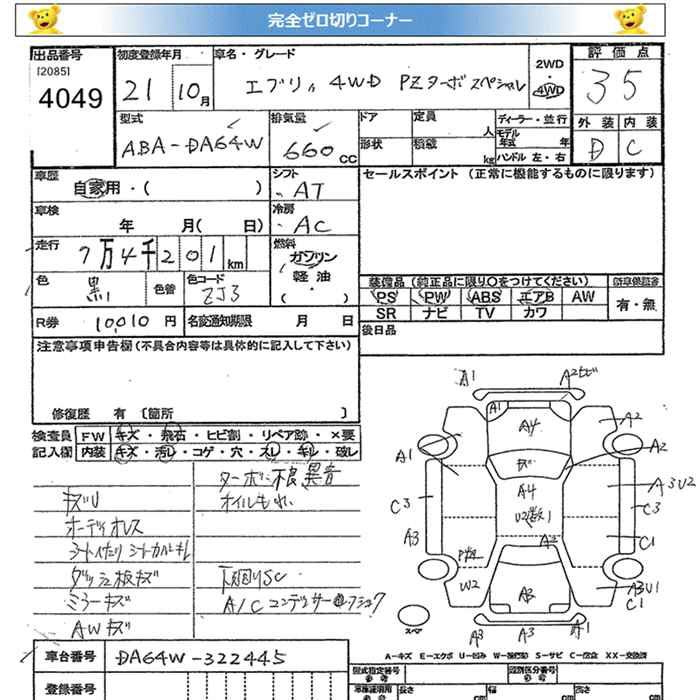 完全ゼロ切りコーナー
出品番号 [2085] 4049
初度登録年月 21 10月
車名・グレード エブリィ 4WD PZターボスペシャル
2WD・4WD
評価点 35
外装 内装
D C
型式 ABA-DA64W
排気量 660cc
ドア 定員 人
形状 積載 kg
ディーラー・並行
モデル年式 年
ハンドル 左・右
車歴 自家用・( )
シフト AT
車検 年 月( 日)
冷房 AC
走行 7万4千201km
燃料 ガソリン 軽油・( )
色 黒 色替 色コード ZJ3
R券 10010円 名変通知期限 月 日
セールスポイント (正常に機能するものに限ります)
装備品 (純正品に限り○をつけてください) 新車保証書
PS PW ABS エアB AW 有・無
SR ナビ TV カワ
後日品
注意事項申告欄(不具合内容等は具体的に記入して下さい)
修復歴 有 〔箇所 〕
検査員 FW キズ・飛石・ヒビ割・リペア跡・×要
記入欄 内装 キズ・汚レ・コゲ・穴・スレ・キレ・破レ
ターボ不良異音
キズU オイルもれ
オーディオレス
シートヘタリ シートカバーキレ
ダッシュ板キズ 下廻りSC
ミラーキズ A/Cコンデンサー
AWキズ
A1 A2
A1 A4 A2
A1 A2
A4 A3U2
C3 U2 1 C3
A3 A2 C1
W2 A3 A3U1
C1
スペア A3 A3 A1
A-キズ E-エクボ U-凹み W-補修跡 S-サビ C-腐食 XX-交換済
車台番号 DA64W-322445
登録番号
型式指定番号 参考 類別区分番号 参考
車検証明用 参考 長さ cm 幅 cm 高さ cm